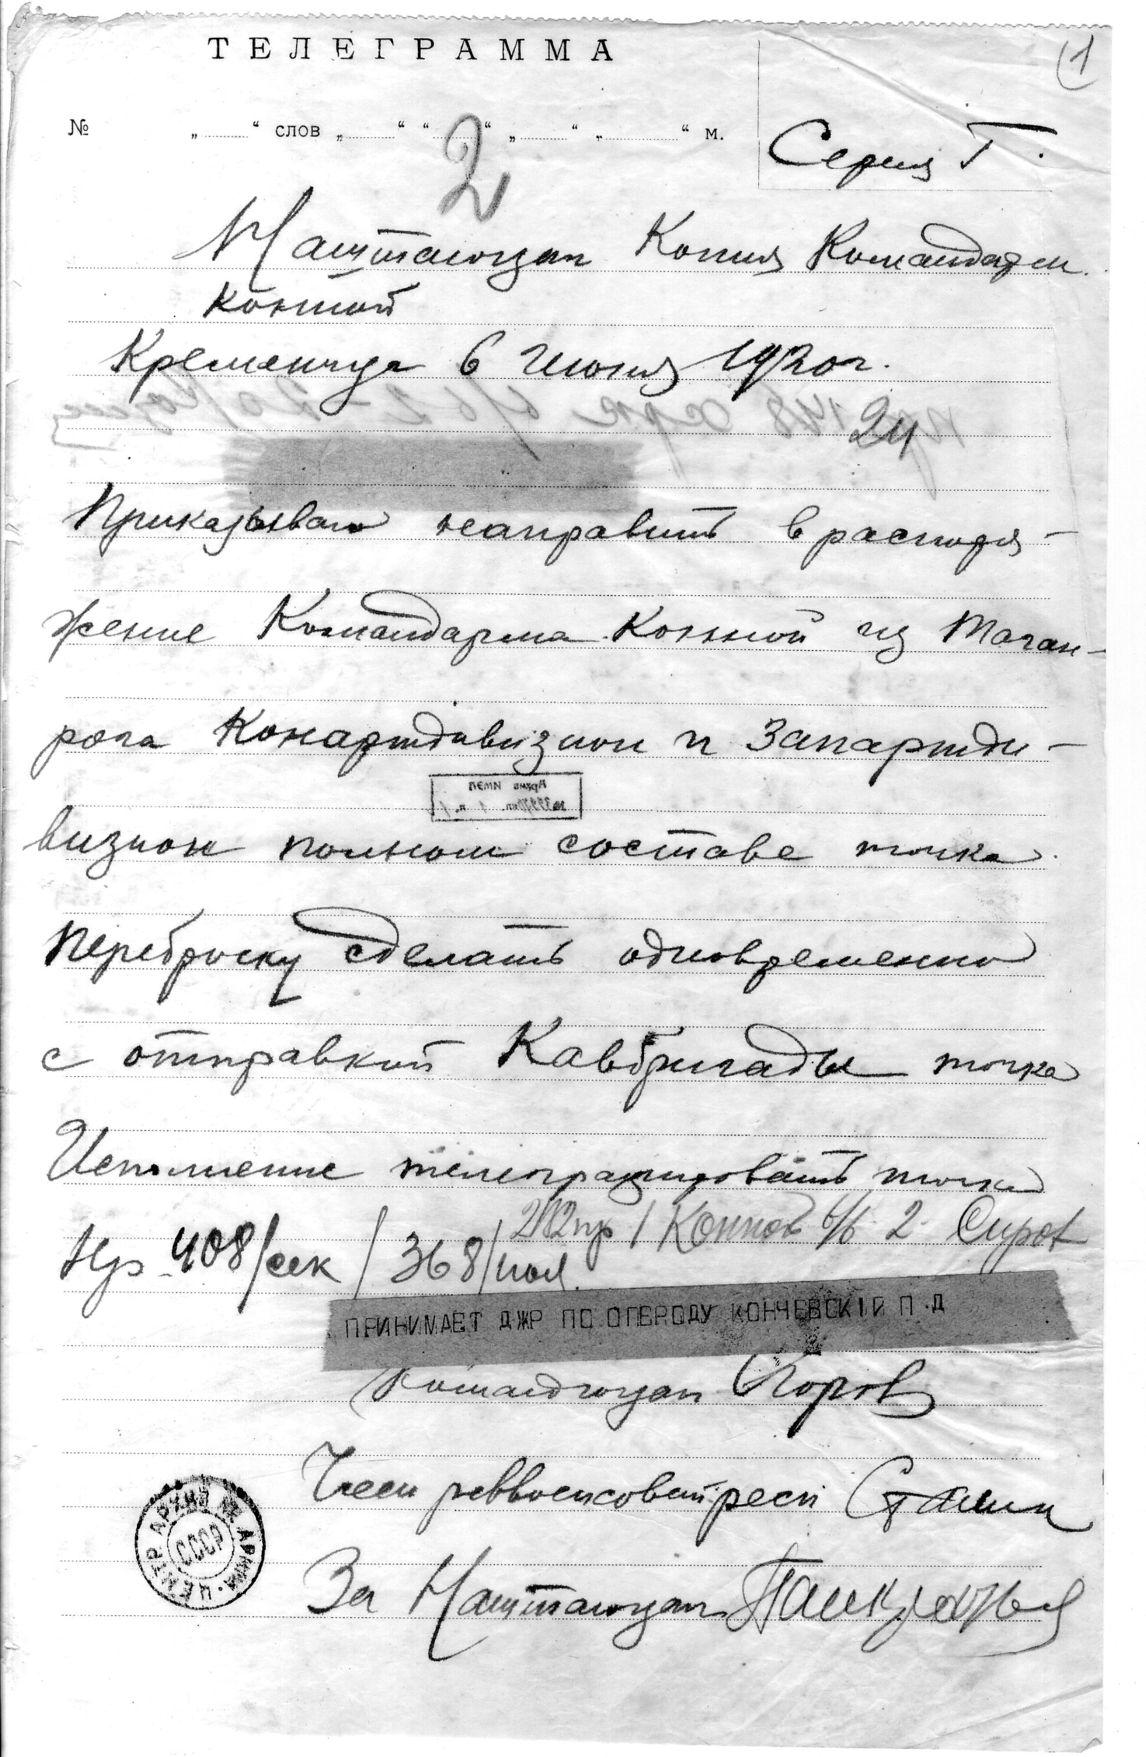 1
ТЕЛЕГРАММА
№ „ “ слов „ “ “ “ „ “ „ “ м.
Серия Г.
2
Наштаюзап Копия Командарм
конной
Кременчуг 6 Июня 1920 г.
24
Приказываю направить в распоря-
жение Командарма Конной из Таган-
рога Конартдивизион и Запартди-
визион полном составе точка
переброску сделать одновременно
с отправкой Кавбригады точка
Исполнение телеграфировать точка
Нр 408/сек / 368/пол
ПРИНИМАЕТ ДЖР ПО ОГВРОДУ КОНЧЕВСКІЙ П.Д
Командюгозап Егоров
Член реввоенсовет респ Сталин
За Наштаюгзап
ЦЕНТР АРХИВ КР. АРМИИ
СССР